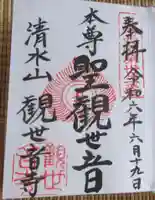 奉拝
令和六年六月十九日
本尊
聖観世音
清水山
観世音寺